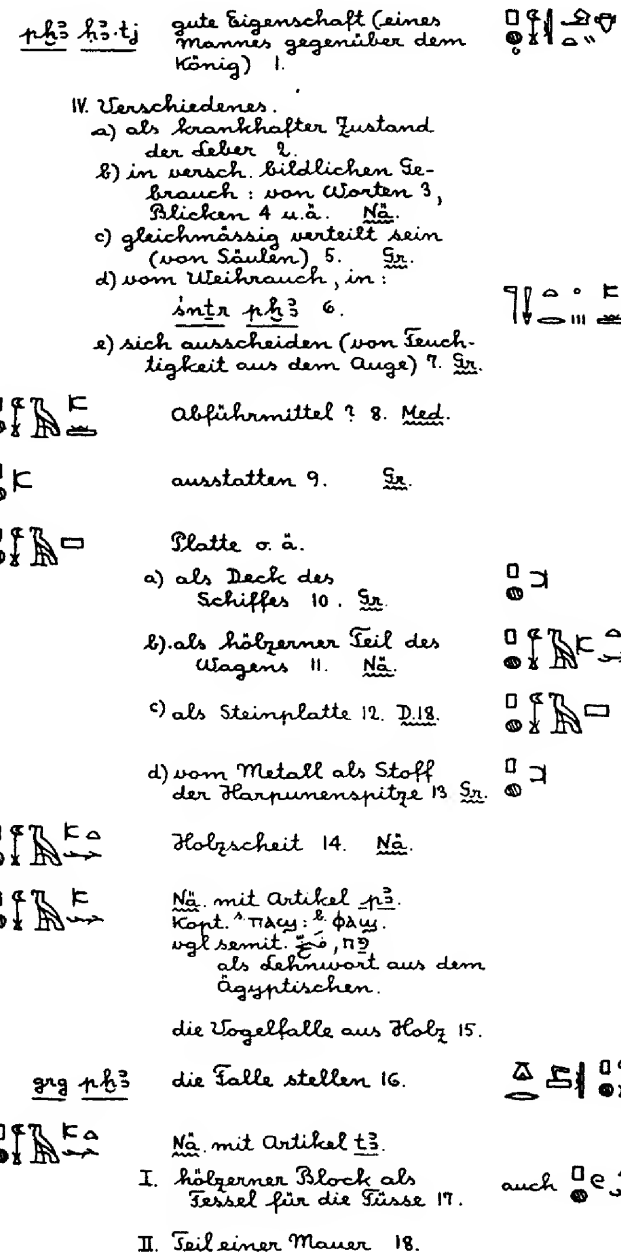 pḫꜣ ḥꜣ.tj gute Eigenschaft (eines
Mannes gegenüber dem
König) 1.
IV. Verschiedenes.
a) als krankhafter Zustand
der Leber 2.
b) in versch. bildlichen Ge-
brauch : von Worten 3,
Blicken 4 u.ä. Nä.
c) gleichmässig verteilt sein
(von Säulen) 5. Gr.
d) vom Weihrauch, in :
śnṯr pḫꜣ 6.
e) sich ausscheiden (von Feuch-
tigkeit aus dem Auge) 7. Gr.
Abführmittel ? 8. Med.
ausstatten 9. Gr.
Platte o. ä.
a) als Deck des
Schiffes 10. Gr.
b) als hölzerner Teil des
Wagens 11. Nä.
c) als Steinplatte 12. D.18.
d) vom Metall als Stoff
der Harpunenspitze 13 Gr.
Holzscheit 14. Nä.
Nä. mit Artikel pꜣ.
Kopt. S. ⲡⲁϣ : B. ⲫⲁϣ.
vgl semit. فخّ, פַּח
als Lehnwort aus dem
Ägyptischen.
die Vogelfalle aus Holz 15.
grg pḫꜣ die Falle stellen 16.
Nä. mit Artikel tꜣ.
I. hölzerner Block als
Fessel für die Füsse 17. auch
II. Teil einer Mauer 18.